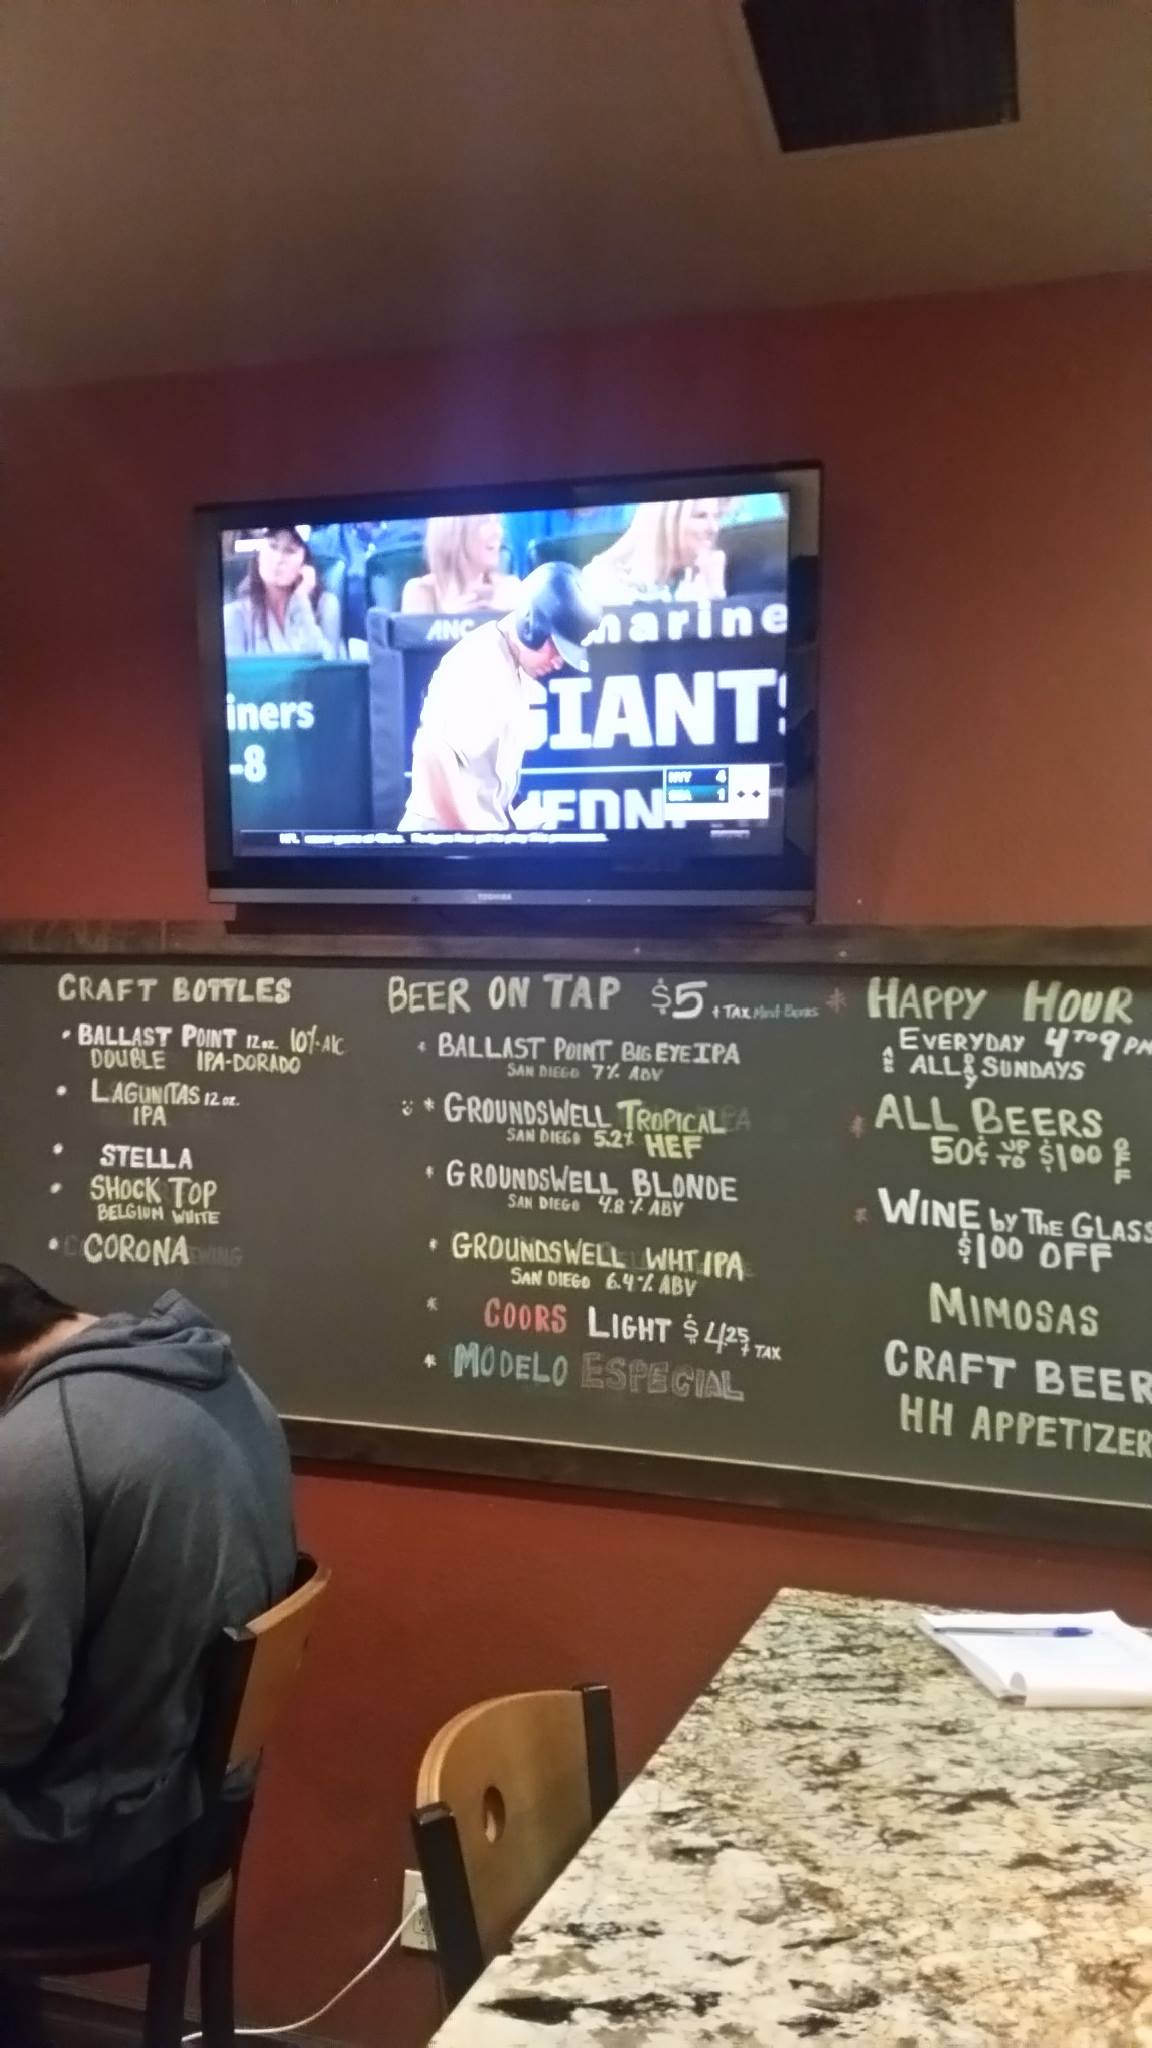 ANC
marine
GIANTS
iners
-8
NYY 4
SEA 1
WEDN
NFL
TOSHIBA
CRAFT BOTTLES
• BALLAST POINT 12oz. 10% Alc
DOUBLE IPA-DORADO
• LAGUNITAS 12 oz.
IPA
• STELLA
• SHOCK TOP
BELGIUM WHITE
• CORONA
BEER ON TAP $5 + TAX Most Beers
* BALLAST POINT BIG EYE IPA
SAN DIEGO 7% ABV
* GROUNDSWELL TROPICAL
SAN DIEGO 5.2% HEF
* GROUNDSWELL BLONDE
SAN DIEGO 4.8% ABV
* GROUNDSWELL WHT IPA
SAN DIEGO 6.4% ABV
* COORS LIGHT $4.25 + TAX
* MODELO ESPECIAL
* HAPPY HOUR
EVERYDAY 4 TO 9 PM
AND ALL DAY SUNDAYS
* ALL BEERS
50¢ UP TO $1.00 OFF
* WINE by THE GLASS
$1.00 OFF
MIMOSAS
CRAFT BEER
HH APPETIZER